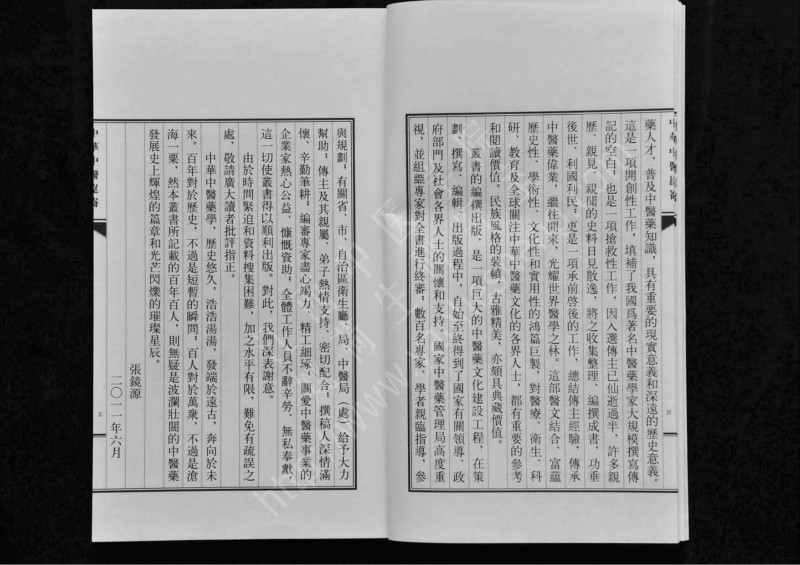 藥人才，普及中醫藥知識，具有重要的現實意義和深遠的歷史意義。
這是一項開創性工作，填補了我國爲著名中醫藥學家大規模撰寫傳
記的空白，也是一項搶救性工作，因入選傳主已仙逝過半，許多親
歷、親見、親聞的史料日見散逸，將之收集整理、編撰成書，功垂
後世，利國利民；更是一項承前啓後的工作，總結傳主經驗，傳承
中醫藥偉業，繼往開來，光耀世界醫學之林。這部醫文結合，富蘊
歷史性、學術性、文化性和實用性的鴻篇巨製，對醫療、衛生、科
研、教育及全球關注中華中醫藥文化的各界人士，都有重要的參考
和閱讀價值。民族風格的裝幀，古雅精美，亦頗具典藏價值。
叢書的編撰出版，是一項巨大的中醫藥文化建設工程，在策
劃、撰寫、編輯、出版過程中，自始至終得到了國家有關領導，政
府部門及社會各界人士的關懷和支持。國家中醫藥管理局高度重
視，並組織專家對全書進行終審；數百名專家、學者親臨指導，參
與規劃；有關省、市、自治區衛生廳局、中醫局（處）給予大力
幫助；傳主及其親屬、弟子熱情支持、密切配合；撰稿人深情滿
懷、辛勤筆耕，編審專家盡心竭力、精工細琢；關愛中醫藥事業的
企業家熱心公益、慷慨資助；全體工作人員不辭辛勞、無私奉獻，
這一切使叢書得以順利出版。對此，我們深表謝意。
由於時間緊迫和資料搜集困難，加之水平有限，難免有疏誤之
處，敬請廣大讀者批評指正。
中華中醫藥學，歷史悠久，浩浩湯湯，發端於遠古，奔向於未
來。百年對於歷史，不過是短暫的瞬間；百人對於萬衆，不過是滄
海一粟，然本叢書所記載的百年百人，則無疑是波瀾壯闊的中醫藥
發展史上輝煌的篇章和光芒閃爍的璀璨星辰。
張鏡源
二〇一一年六月
中華中醫昆侖